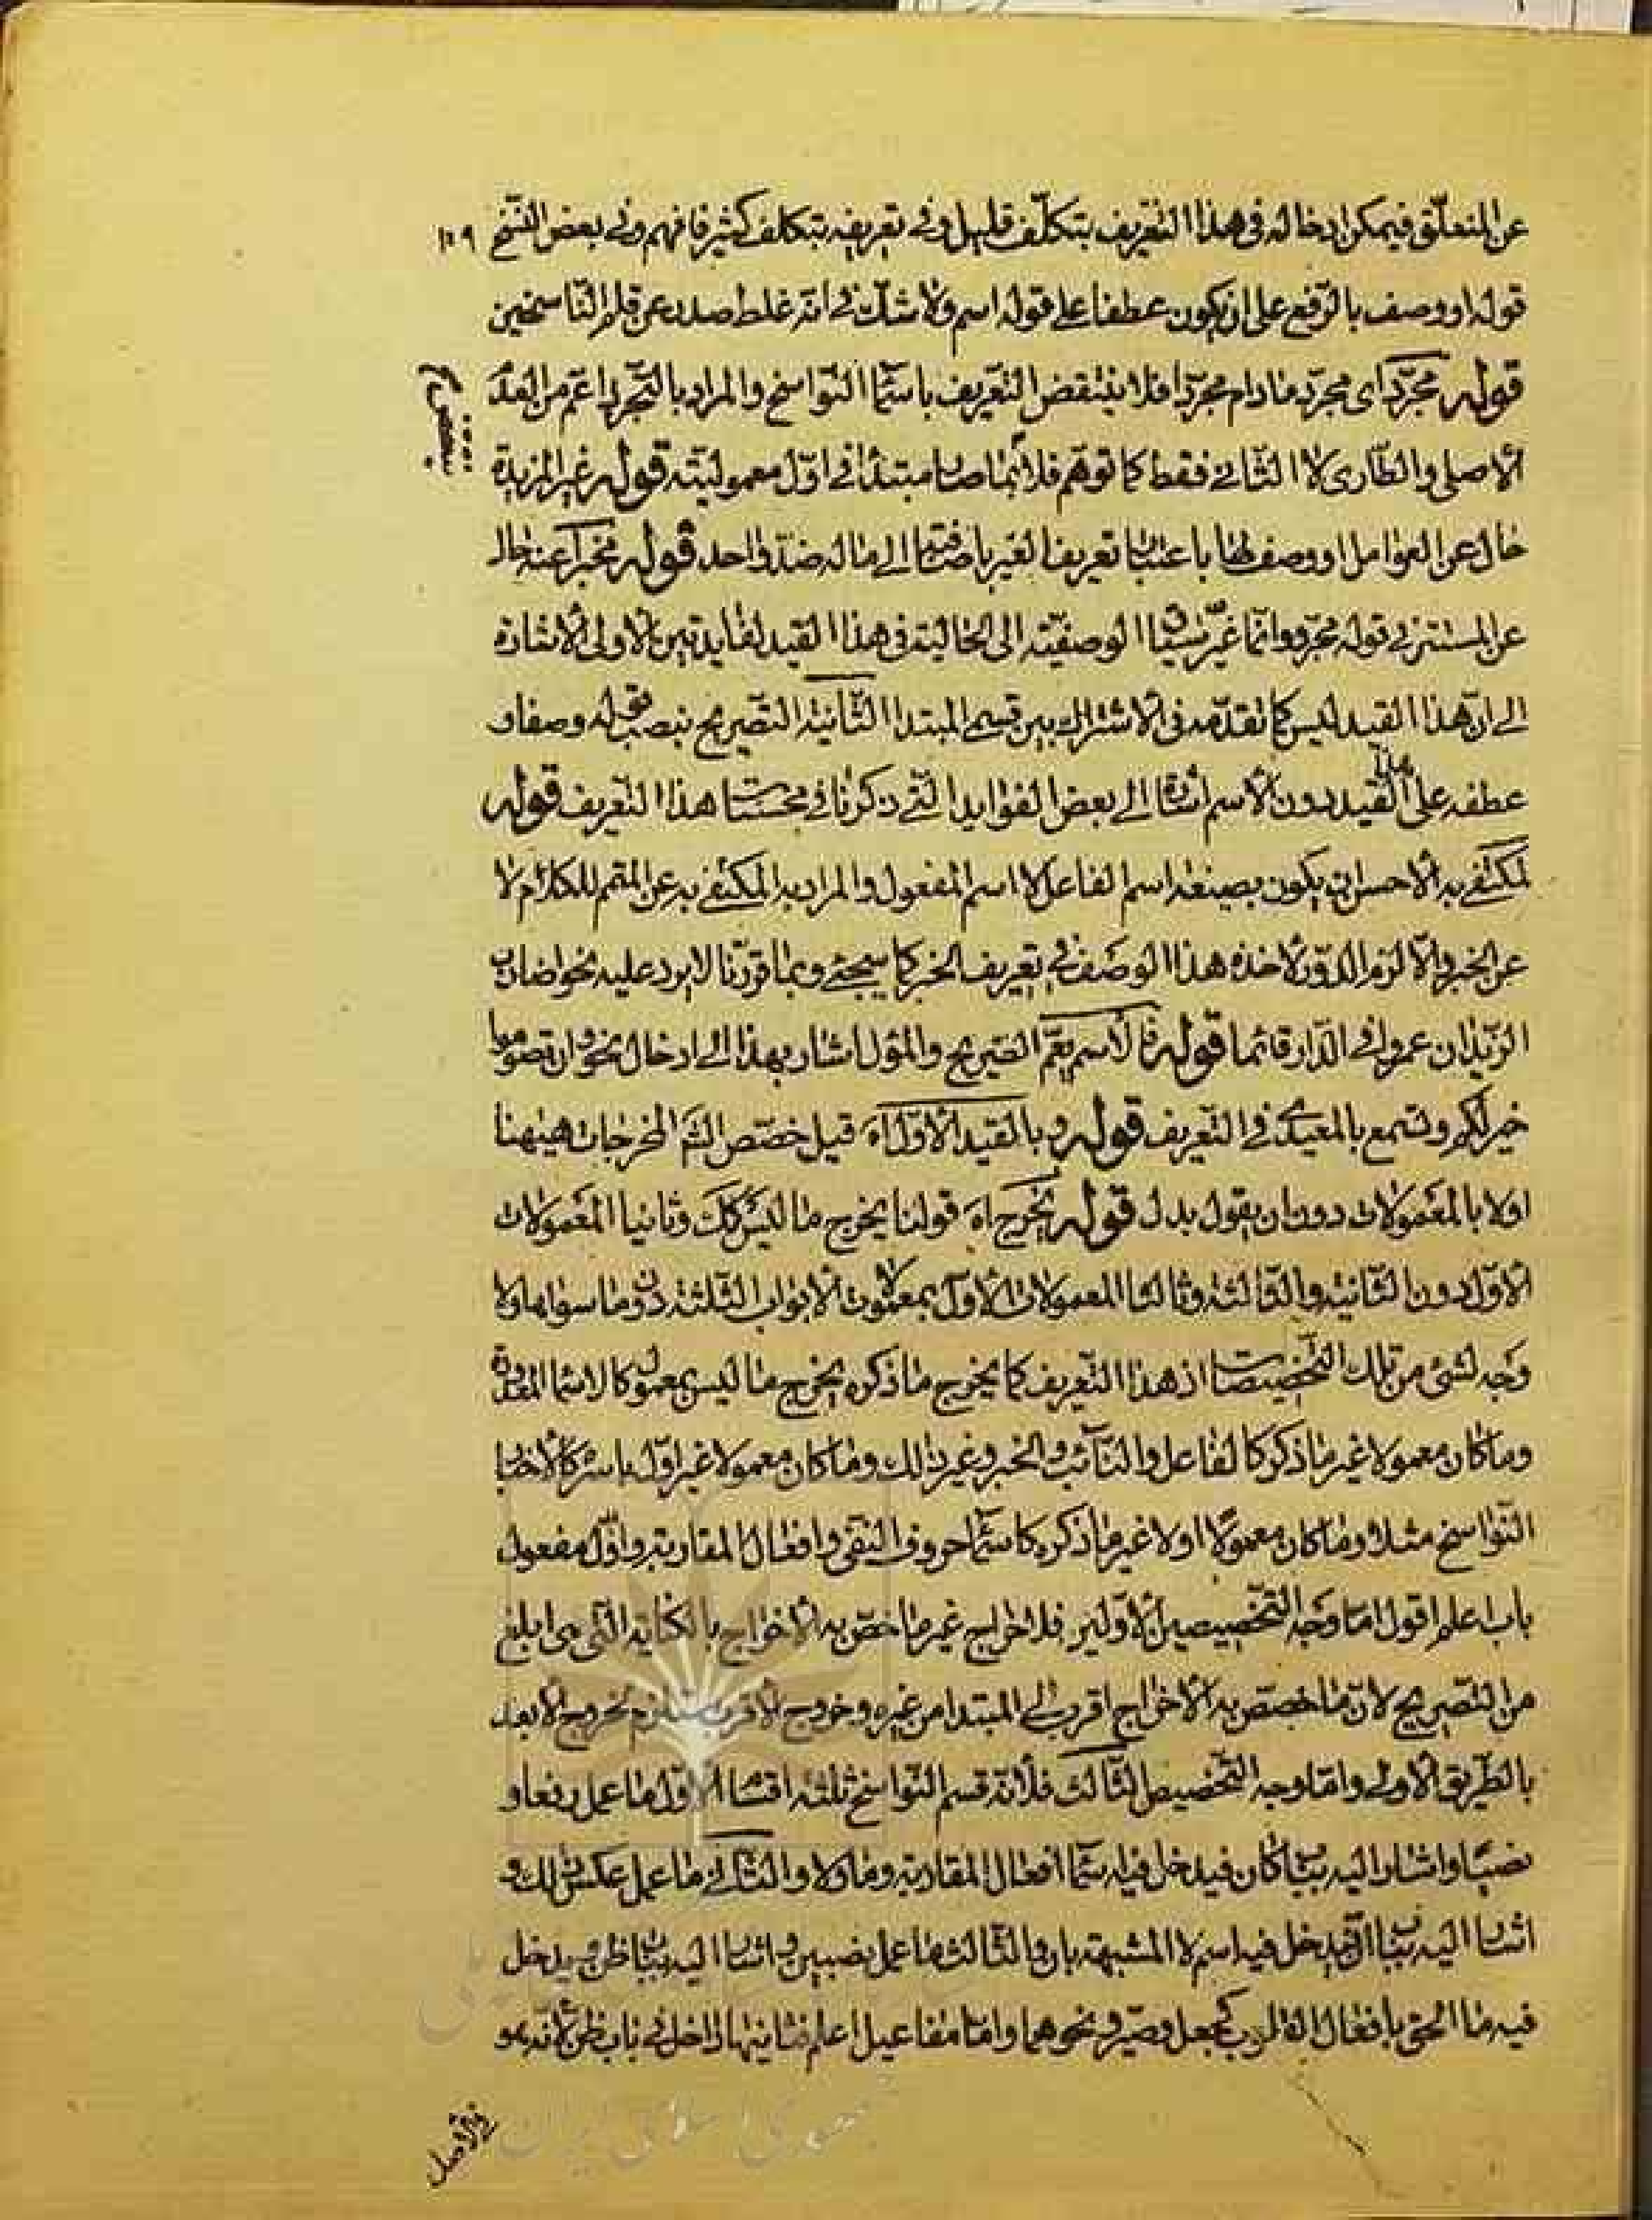 عن المتعلّق فيمكن ادخاله فى هذا التعريف بتكلّف قليل وفى تعريفه بتكلف كثير فافهم وفى بعض النسخ ١٠٩
قوله او وصف بالرّفع على ان يكون عطفا على قوله اسم ولا شكّ فى انه غلط صدر عن قلم النّاسخين
قوله مجرّد اى مجرّد مادام مجرّدا فلا ينتقض التعريف باسماء النّواسخ والمراد بالتجرد اعمّ من
الاصلى والطّارى لا الثّانى فقط كما توهّم فلانّها صار مبتدأ فى اوّل معموليته قوله غير المزيدة
حال عن العوامل او وصف لها باعتبار تعريف الغير باضافتها الى ماله ضدّ واحد قوله مخبرا عنه حال
عن المستتر فى قوله مجرّد وانّما غيّر سياق الوصفيّة الى الحالية فى هذا القيد لفايدتين الاولى الاشارة
الى ان هذا القيد ليس كما تقدّمه فى الاشتراك بين قسمى المبتدا الثّانية التصريح بنصب قوله وصفا و
عطفه على القيد دون الاسم اشارة الى بعض الفوايد الّتى ذكرنا فى محسنات هذا التعريف قوله
لمكتفى به الاحسن ان يكون بصيغة اسم الفاعل لا اسم المفعول والمراد به المكتفى به عن المتمم للكلام لا
عن الخبر والّا لزم الدّور لاخذه هذا الوصف فى تعريف الخبر كما سيجئ وبما قرّرنا لا يرد عليه نحو ضارب
الزّيدان عمروا فى الدّار قائما قوله فالاسم يعمّ الصّريح والمؤل اشار بهذا الى ادخال نحو وان تصوموا
خير لكم وتسمع بالمعيدى فى التّعريف قوله وبالقيد الاوّل اه قيل خصّص الشّم المخرجات هيهنا
اولا بالمعمولات دون ان يقول بدل قوله يخرج اه قولنا يخرج ما ليس كك وثانيا المعمولات
الاوّل دون الثّانية والثّالثة وثالثا المعمولات الاول بمعمولات الابواب الثّلثة دون ما سواها ولا
وجه لشئ من تلك التّخصيصات اذ هذا التّعريف كما يخرج ما ذكره يخرج ما ليس بمعمول كالاسماء المعدودة
وما كان معمولا غير ما ذكر كالفاعل والنّائب والخبر وغير ذلك وما كان معمولا غير اوّل كالاخبار
النّواسخ مثلا وما كان معمولا اولا غير ما ذكره كاسماء حروف النّفى وافعال المقاربة واوّل مفعول
باب اعلم اقول امّا وجه التّخصيصين الاوّلين فلاخراج غير ما خصّ به الاخراج بالكناية الّتى هى ابلغ
من التّصريح لانّ ما خصّص به الاخراج اقرب الى المبتدا من غيره وخروج الاقرب يستلزم خروج الابعد
بالطّريق الاولى وامّا وجه التّخصيص الثّالث فلانّه قسم النّواسخ ثلثة اقسام الاوّل ما عمل رفعا و
نصبا واشار اليه بباب كان فيدخل فيه اسماء افعال المقاربة وما ولا والثّانى ما عمل عكس ذلك و
اشار اليه بباب ان فيدخل فيه اسم لا المشبهة بان والثّالث ما عمل نصبين واشار اليه بباب ظن ويدخل
فيه ما الحق بافعال القلوب كجعل وصيّر ونحوهما وامّا مفاعيل اعلم فثانيها داخل فى باب ظن لانه هو
فى الاصل